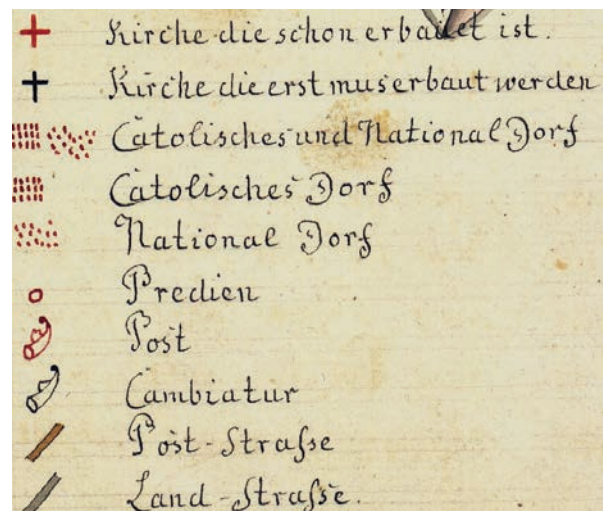 Kirche die schon erbauet ist.
Kirche die erst mus erbaut werden
Catolisches und National Dorf
Catolisches Dorf
National Dorf
Predien
Post
Cambiatur
Post-Straſse
Land-Straſse.